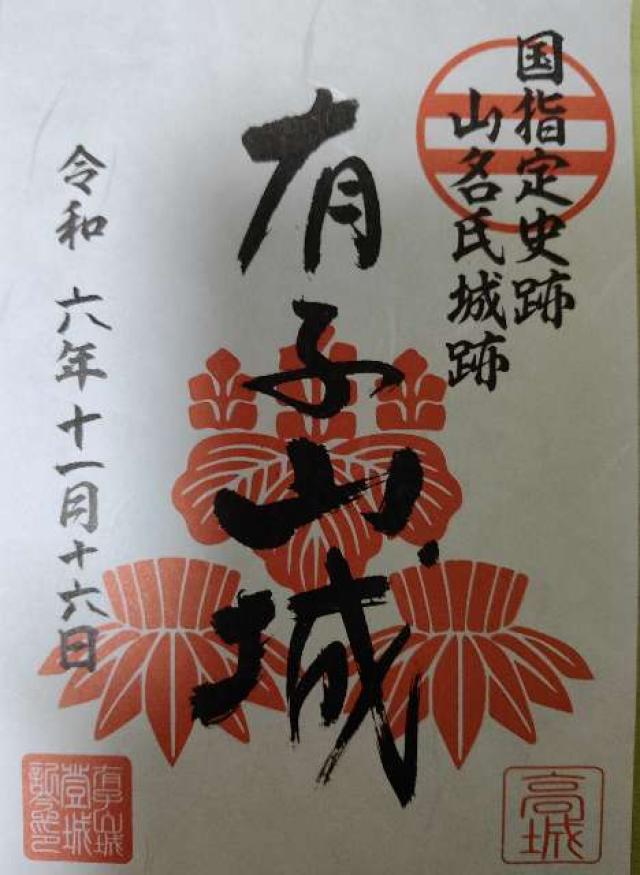 国指定史跡
山名氏城跡
有子山城
令和 六年十一月十六日
有子山城
登城
高城